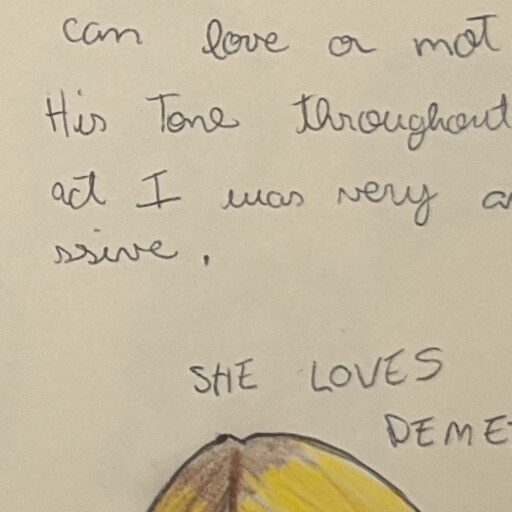 can love or not
His Tone throughout
act I was very a
ssive.
SHE LOVES
DEME